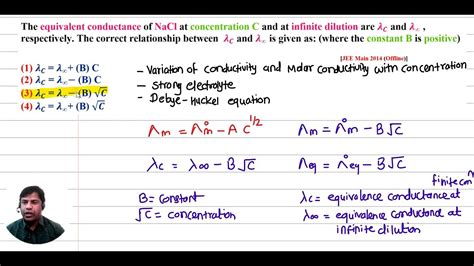 The equivalent conductance of NaCl at concentration C and at infinite dilution are λC and λ∞ ,
respectively. The correct relationship between λC and λ∞ is given as: (where the constant B is positive)
[JEE Main 2014 (Offline)]
(1) λC = λ∞ + (B) C
(2) λC = λ∞ − (B) C
(3) λC = λ∞ − (B) √C
(4) λC = λ∞ + (B) √C
- Variation of conductivity and Molar conductivity with concentration
- Strong electrolyte
- Debye-Huckel equation
Λm = Λ°m − A C^1/2
λc = λ∞ − B√C
Λm = Λ°m − B√C
Λeq = Λ°eq − B√C
B = Constant
√C = concentration
finite con
λc = equivalence conductance at
λ∞ = equivalence conductance at
infinite dilution